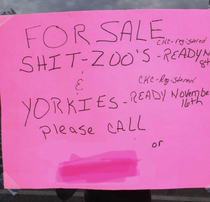 FOR SALE
CKC-registered
SHIT-ZOO'S - READY NOV
&
CKC-Registered
YORKIES - READY November
16th
please CALL
or